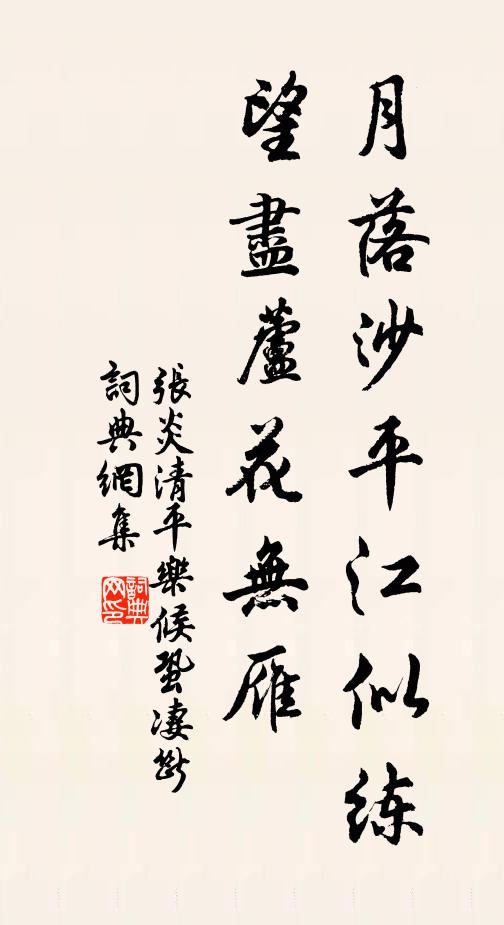 月落沙平江似练
望盡蘆花無雁
張炎清平樂候蛩凄斷
詞典網集
詞典網印